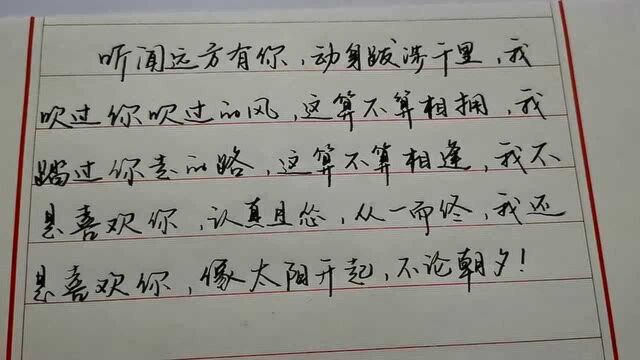 听闻远方有你,动身跋涉千里,我
吹过你吹过的风,这算不算相拥,我
过你走的路,这算不算相逢,我不
是喜欢你,认真且怂,从一而终,我还
是喜欢你,像太阳升起,不论朝夕!